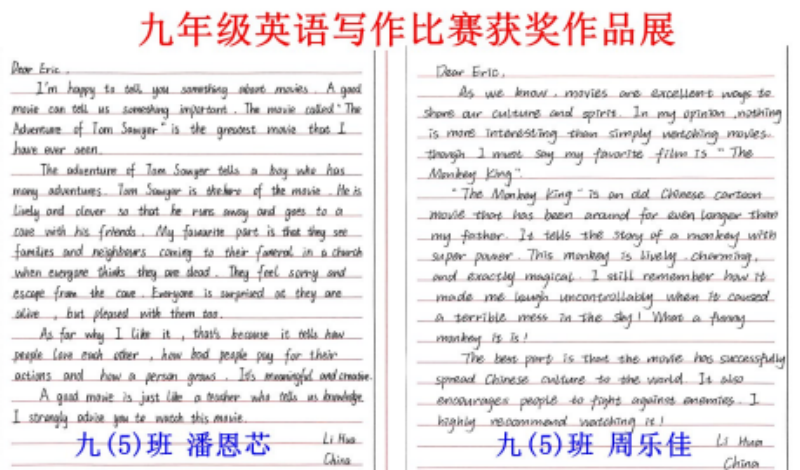 九年级英语写作比赛获奖作品展
Dear Eric,
I'm happy to tell you something about movies. A good
movie can tell us something important. The movie called "The
Adventure of Tom Sawyer" is the greatest movie that I
have ever seen.
The adventure of Tom Sawyer tells a boy who has
many adventures. Tom Sawyer is the hero of the movie. He is
lively and clever so that he runs away and goes to a
cave with his friends. My favourite part is that they see
families and neighbours coming to their funeral in a church
when everyone thinks they are dead. They feel sorry and
escape from the cave. Everyone is surprised at they are
alive, but pleased with them too.
As for why I like it, that's because it tells how
people love each other, how bad people pay for their
actions and how a person grows. It's meaningful and creative.
A good movie is just like a teacher who tells us knowledge.
I strongly advise you to watch this movie.
Li Hua
China
九(5)班 潘恩芯
Dear Eric,
As we know, movies are excellent ways to
share our culture and spirit. In my opinion, nothing
is more interesting than simply watching movies.
though I must say my favorite film is "The
Monkey King".
"The Monkey King" is an old Chinese cartoon
movie that has been around for even longer than
my father. It tells the story of a monkey with
super power. This monkey is lively, charming,
and exactly magical. I still remember how it
made me laugh uncontrollably when it caused
a terrible mess in the sky! What a funny
monkey it is!
The best part is that the movie has successfully
spread Chinese culture to the world. It also
encourages people to fight against enemies. I
highly recommend watching it!
Li Hua
China
九(5)班 周乐佳